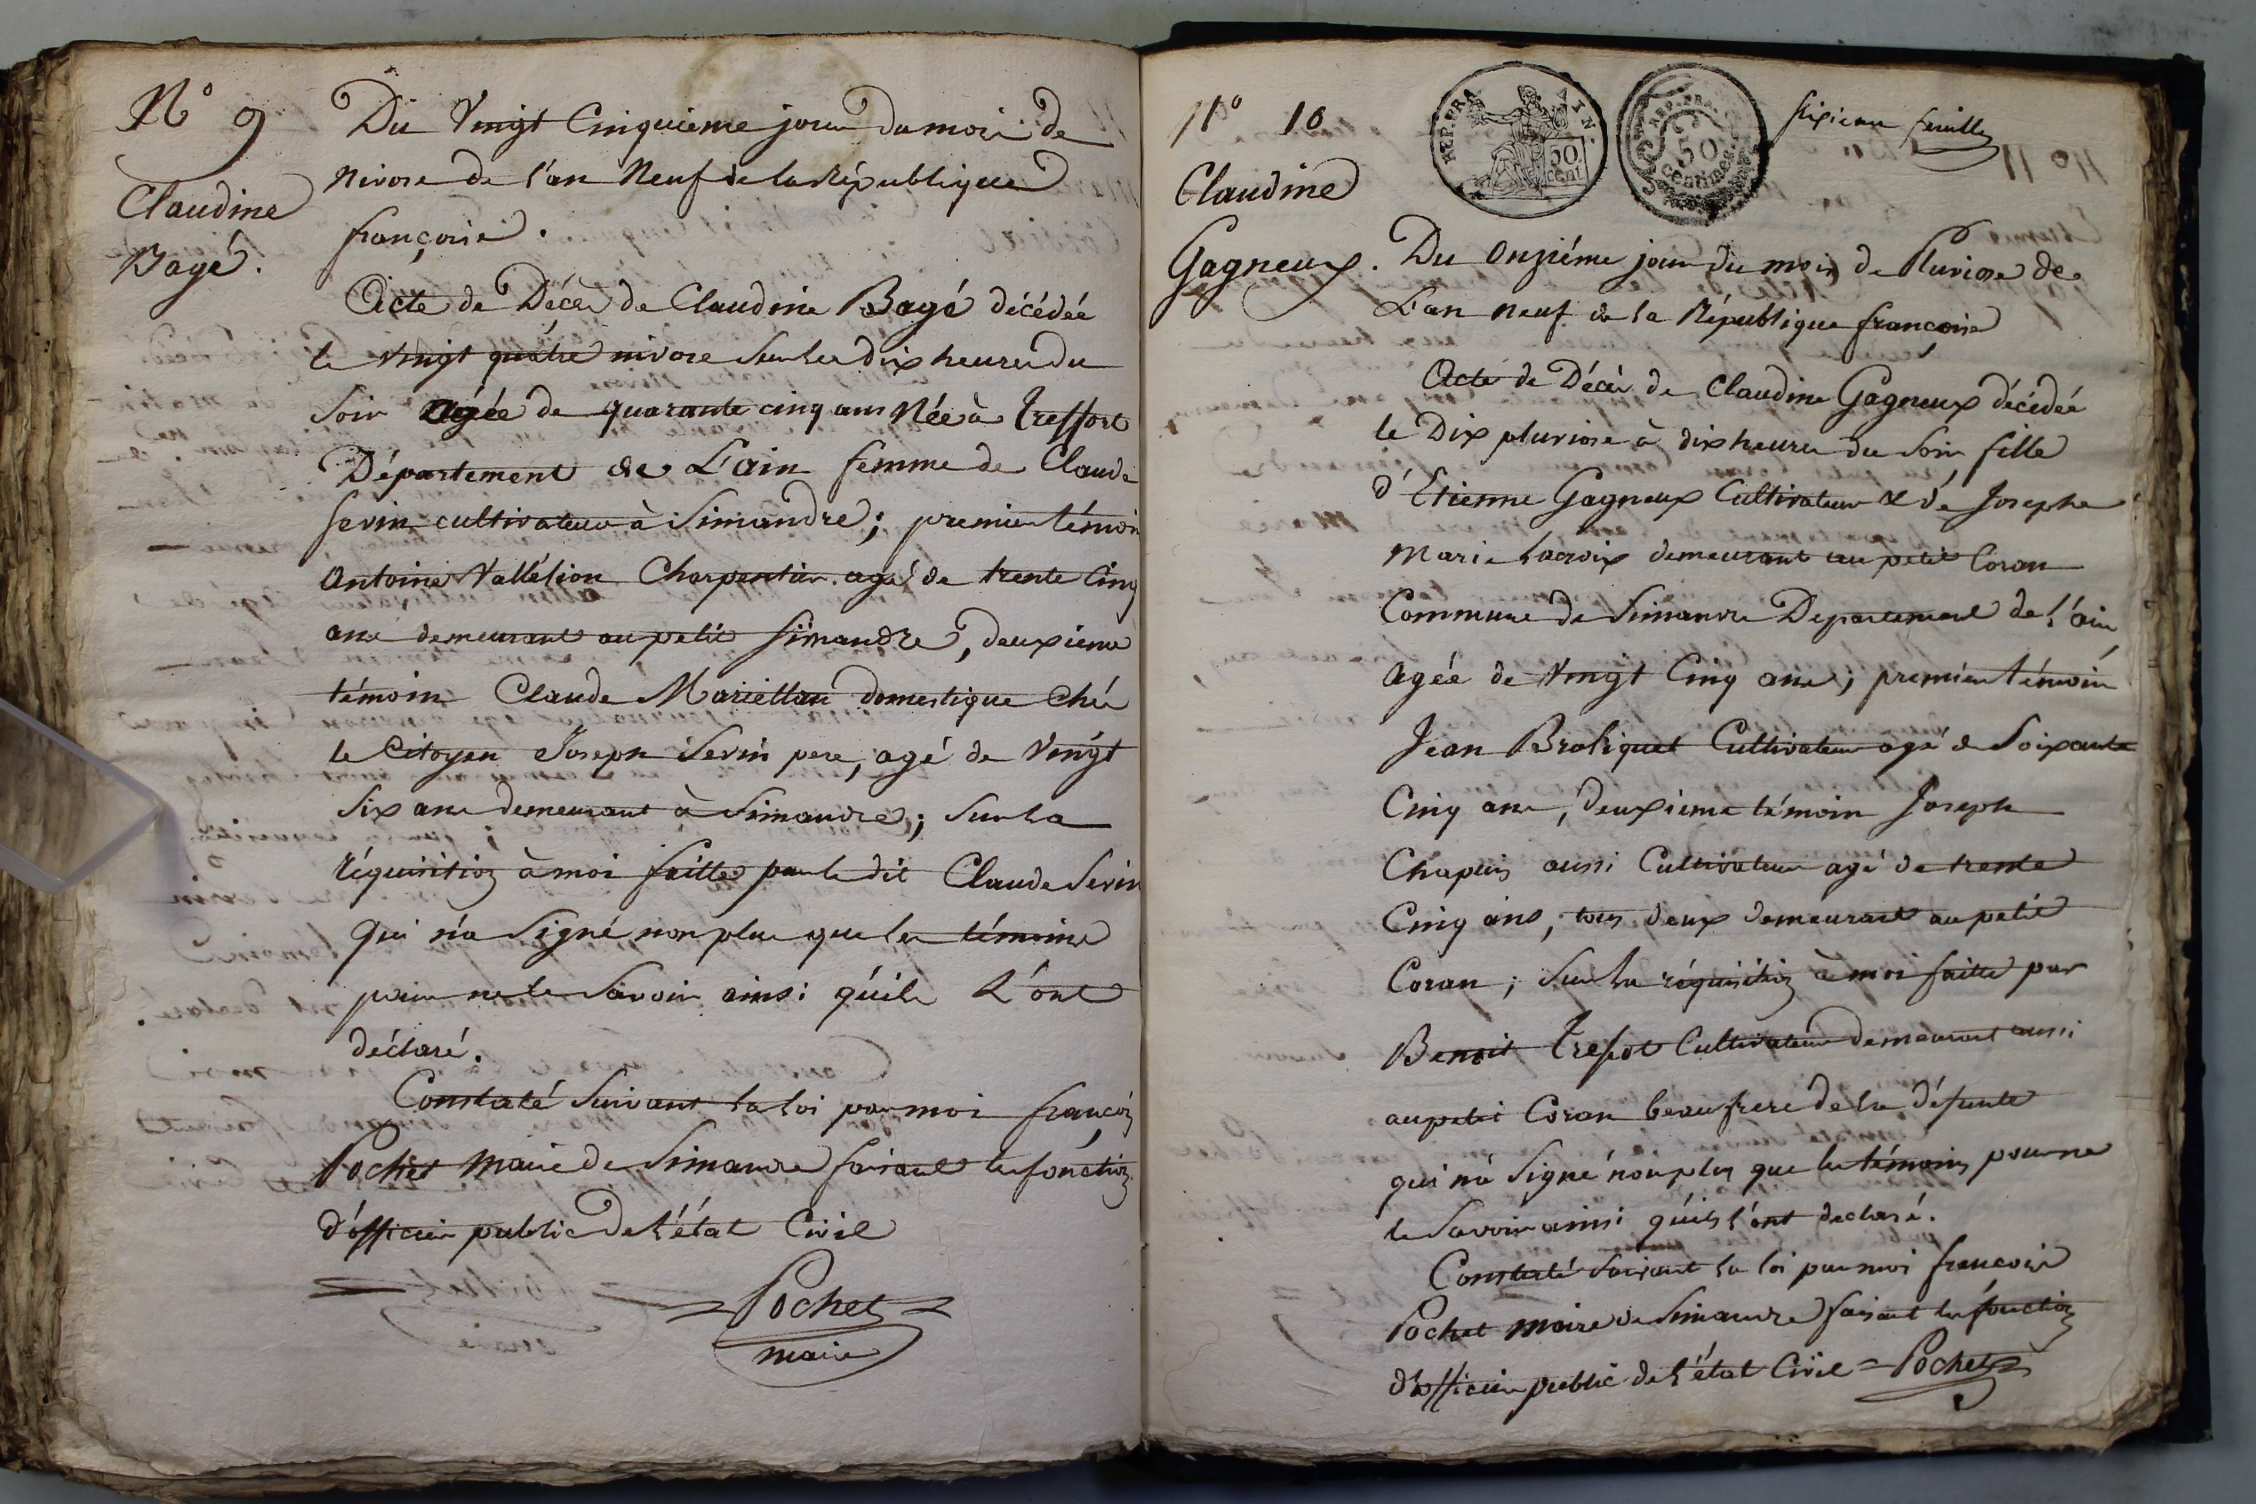 N° 9
Claudine
Bagé.
Du Vingt Cinquieme jour du mois de
Nivose de l'an Neuf de la République
françoise.
Acte de Décès de Claudine Bagé décédée
le vingt quatre nivose sur les dix heures du
Soir agée de quarante cinq ans Née à Treffort
Département de L'ain femme de Claude
Sevin cultivateur à Simandre; premier témoin
Antoine Charpentier agé de trente Cinq
ans demeurant au petit Simandre, deuxieme
témoin Claude domestique ché
le Citoyen Joseph Sevin pere, agé de Vingt
Six ans demeurant à Simandre; Sur la
réquisition à moi faitte par le dit Claude Sevin
qui n'a Signé non plus que les témoins
pour ne le Savoir ainsi qu'ils L'ont
déclaré.
Constaté Suivant la loi par moi françois
Pochet Maire de Simandre faisant les fonctions
d'officier public de l'état Civil
Pochet
maire
N° 10
Claudine
Gagneux.
REP. FRA. AIN.
50 cent.
REP. FRA.
50 centimes
Sixieme feuille
Du Onziéme jour du mois de Pluviose de
L'an neuf de la République françoise
Acte de Décès de Claudine Gagneux décédée
le Dix pluviose à dix heures du Soir fille
d'Etienne Gagneux Cultivateur & de Josephe
Marie Lacroix demeurant au petit Coran
Commune de Simandre Departement de l'ain,
agée de Vingt Cinq ans; premier témoin
Jean Broliquet Cultivateur agé de Soixante
Cinq ans, deuxieme témoin Joseph
Chapuis aussi Cultivateur agé de trente
Cinq ans, tous deux demeurant au petit
Coran; Sur la réquisition à moi faitte par
Benoit Cultivateur demeurant aussi
au petit Coran beau frere de la défunte
qui n'a Signé non plus que les témoins pour ne
le Savoir ainsi qu'ils l'ont declaré.
Constaté Suivant la loi par moi françois
Pochet Maire de Simandre faisant les fonctions
d'officier public de l'état Civil = Pochet